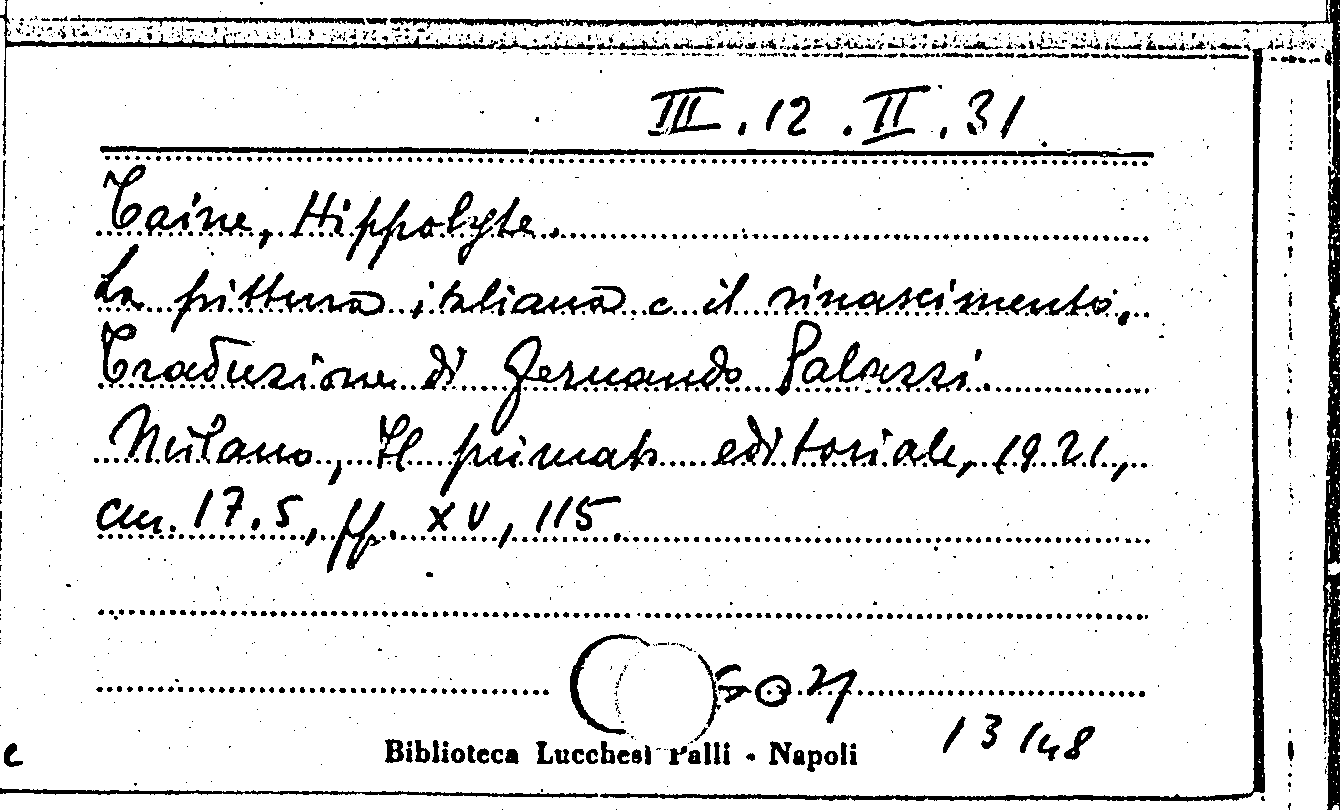 III.12.II.31
Taine, Hippolyte.
La pittura italiana e il rinascimento.
Traduzione di Fernando Palazzi.
Milano, Il primato editoriale, 1921,
cm. 17.5, pp. XV, 115.
Biblioteca Lucchesi Palli - Napoli